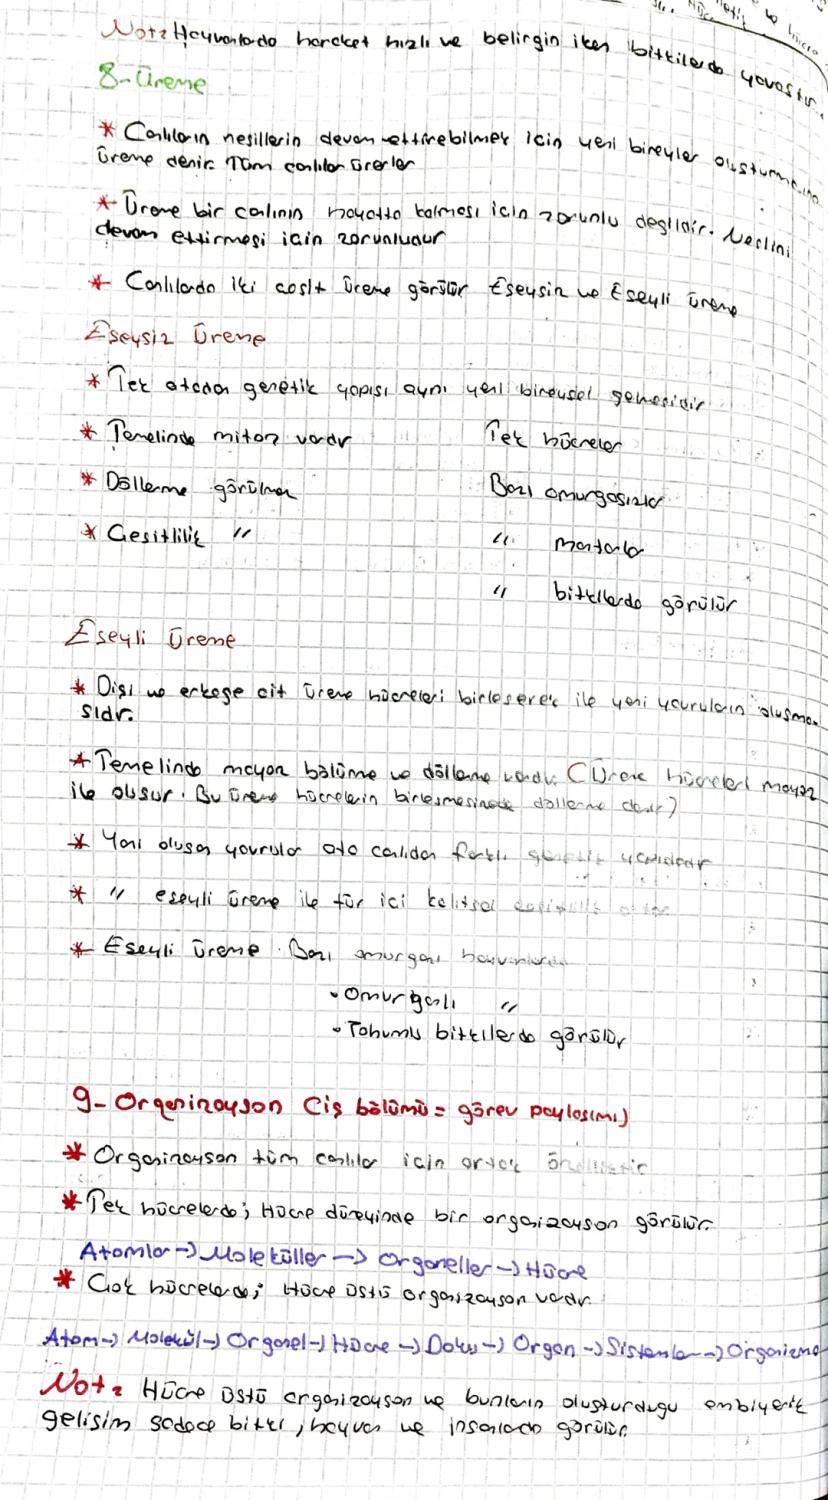 Not: Hayvanlarda hareket hızlı ve belirgin iken bitkilerde yavaştır.
8- Üreme
* Canlıların nesillerin devam ettirebilmek için yeni bireyler oluşturmasına
üreme denir. Tüm canlılar ürerler
* Üreme bir canlının hayatta kalması için zorunlu değildir. Neslini
devam ettirmesi için zorunludur
* Canlılarda iki çeşit üreme görülür Eşeysiz ve Eşeyli üreme
Eşeysiz Üreme
* Tek atadan genetik yapısı aynı yeni bireysel gelmesidir
* Temelinde mitoz vardır Tek hücreler
* Döllenme görülmez Bazı omurgasızlar
* Çeşitlilik " " mantarlar
" bitkilerde görülür
Eşeyli Üreme
* Dişi ve erkeğe ait üreme hücreleri birleşerek ile yeni yavruların oluşma-
sıdır.
* Temelinde mayoz bölüme ve döllenme vardır. (Üreme hücreleri mayoz
ile oluşur. Bu üreme hücrelerin birleşmesinede döllenme denir)
* Yeni oluşan yavrular ata canlıdan farklı genetik yapıdadır
* " eşeyli üreme ile tür içi kalıtsal
* Eşeyli üreme · Bazı hayvanlarda
• Omurgalı "
• Tohumlu bitkilerde görülür
9- Organizasyon (iş bölümü = görev paylaşımı)
* Organizasyon tüm canlılar için ortak
* Tek hücrelerde; Hücre düzeyinde bir organizasyon görülür.
Atomlar → Moleküller → Organeller → Hücre
* Çok hücrelerde; Hücre üstü organizasyon vardır.
Atom → Molekül → Organel → Hücre → Doku → Organ → Sistemler → Organizma
Not: Hücre üstü organizasyon ve bunların oluşturduğu embiyerik
gelişim sadece bitki, hayvan ve insanlarda görülür.